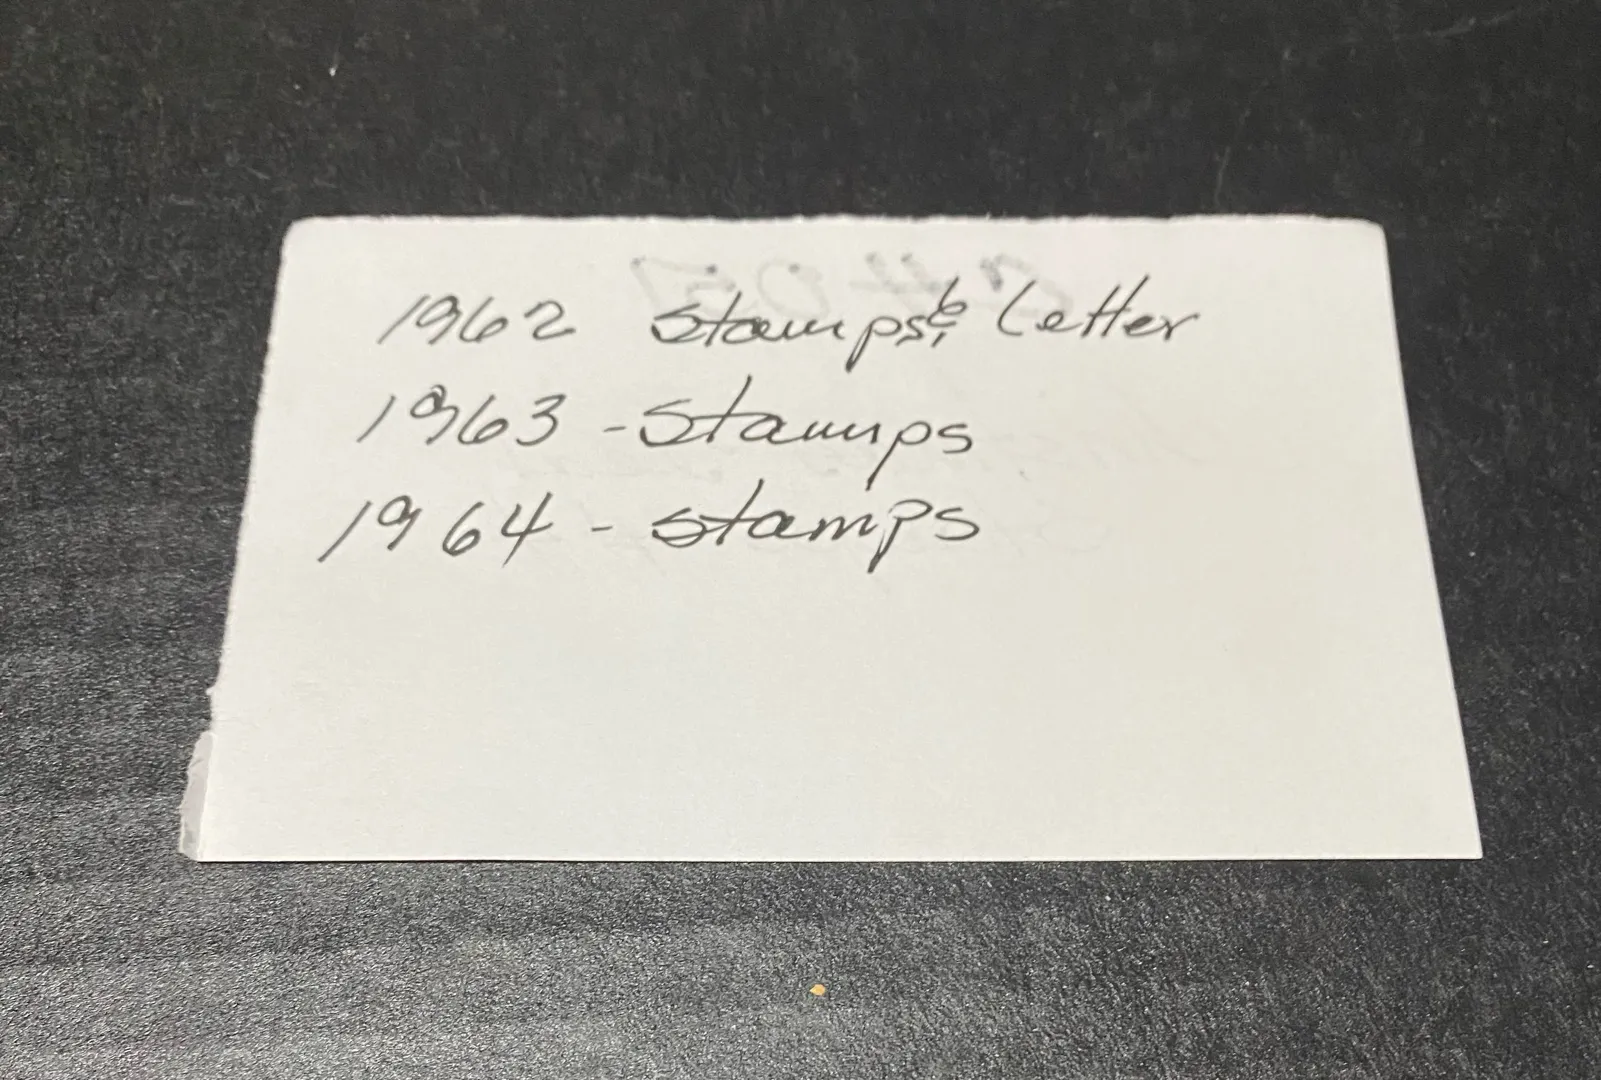 1962 Stamps & Letter
1963 - Stamps
1964 - stamps